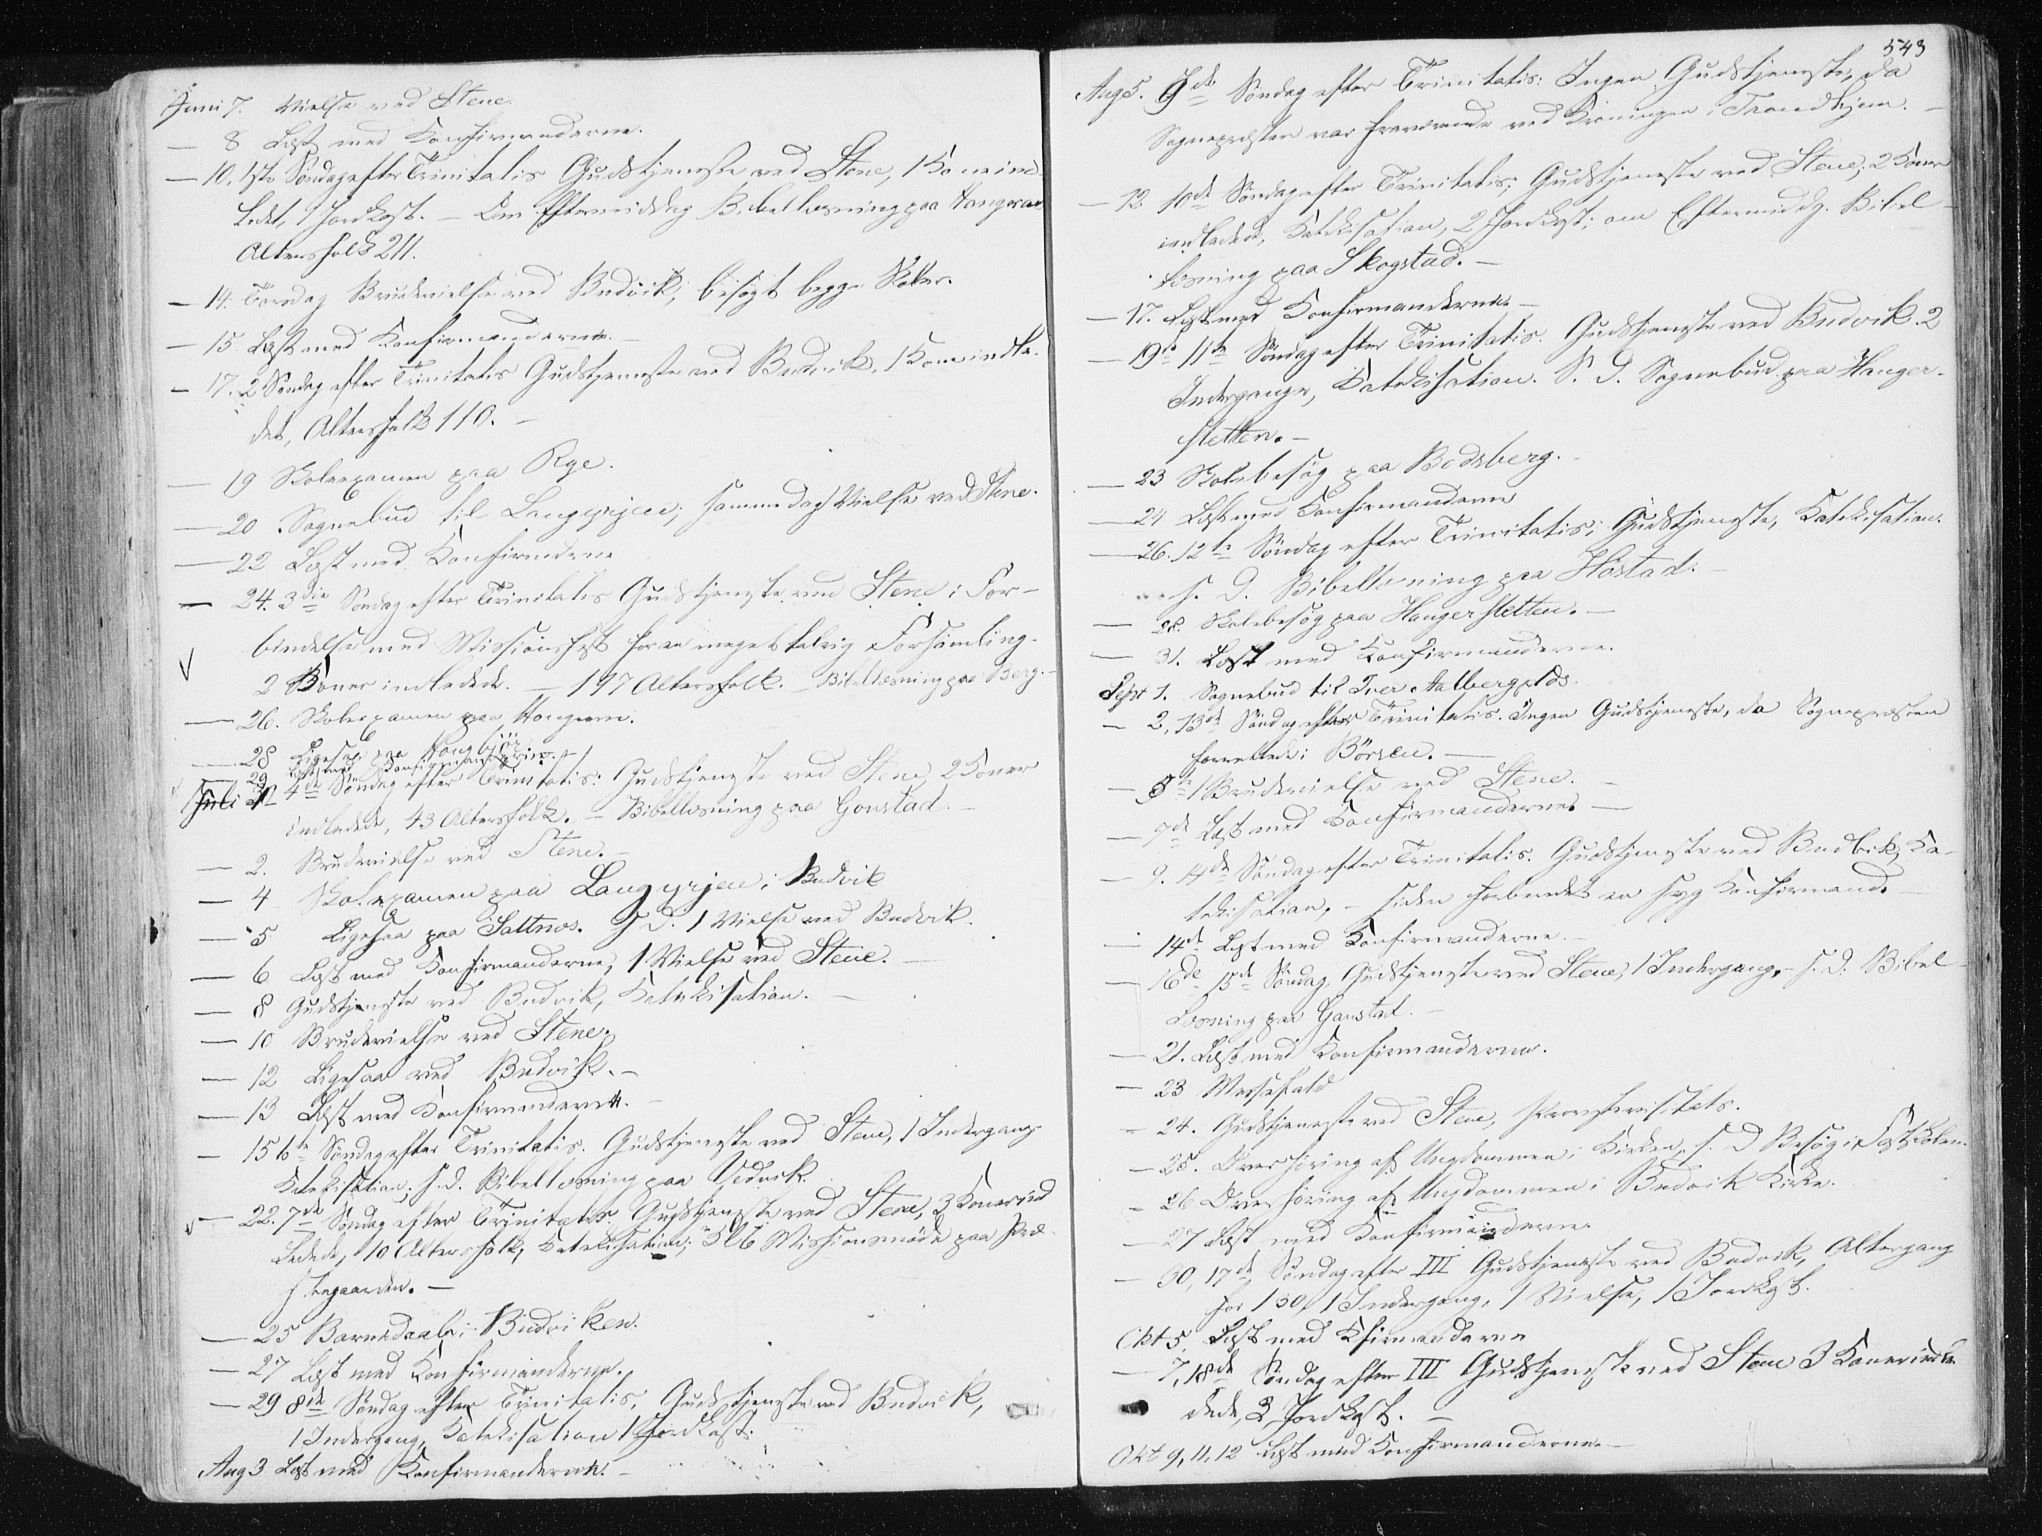 Juni 7. Vielse ved Stene.
— 8 Læst med Konfirmanderne.
— 10. 1ste Søndag efter Trinitatis Gudstjeneste ved Stene, 1 Kone ind-
ledet, 1 Jordkast. — Om Eftermiddag Bibellæsning paa Haugeran
Altersfolk 211.
— 14. Torsdag Brudevielse ved Budvik, besøgt begge Skoler.
— 15 Læst med Konfirmanderne.
— 17. 2 Søndag efter Trinitatis Gudstjeneste ved Budvik, 1 Kone indle-
det, Altersfolk 110. —
— 19 Skoleexamen paa Rye.
— 20 Sognebud til Langyrjen; samme dag 1 Vielse ved Stene.
— 22 Læst med Konfirmderne
— 24. 3die Søndag efter Trinitatis Gudstjeneste ved Stene i For-
bindelse med Missionsfest for en meget talrig Forsamling.
2 Koner indledede. — 197 Altersfolk. — Bibellæsning paa Berg. —
— 26. Skoleexamen paa Haugeran.
— 28 Ligesaa paa Haugbjør
— 29 Læst med Konfirmanderne. —
Juli 1 4de Søndag efter Trinitatis: Gudstjeneste ved Stene, 2 Koner
indledede, 43 Altersfolk. — Bibellæsning paa Gonstad. —
— 2. Brudevielse ved Stene. —
— 4 Skoleexamen paa Langyrjen i Budvik
— 5 Ligesaa paa Saltnes. S. D. 1 Vielse ved Budvik.
— 6 Læst med Konfirmanderne, 1 Vielse ved Stene. —
— 8 Gudstjeneste ved Budvik, Katekisation. —
— 10 Brudevielse ved Stene.
— 12 Ligesaa ved Budvik. —
— 13 Læst med Konfirmanderne. —
— 15 6te Søndag efter Trinitatis. Gudstjeneste ved Stene, 1 Indergang
Katekisation. S. D. Bibellæsning paa Vedvik
— 22. 7de Søndag efter Trinitatis Gudstjeneste ved Stene, 3 Koner ind
ledede, 10 Altersfolk, Katekisation; Missionsmøde paa Præ-
stegaarden. —
— 25 Barnedaab i Budviken.
— 27 Læst med Konfirmanderne.
— 29 8de Søndag efter Trinitatis, Gudstjeneste ved Budvik,
1 Indergang, Katekisation 1 Jordkast.
Aug 3 Læst med Konfirmanderne. —
543
Aug 5. 9de Søndag efter Trinitatis: Ingen Gudstjeneste, da
Sognepræsten var fraværende ved Kroningen i Trondhjem. —
— 12. 10de Søndag efter Trinitatis; Gudstjeneste ved Stene, 2 Koner
indledede, Katekisation, 2 Jordkast; om Eftermiddg. Bibel-
læsning paa Skogstad. —
— 17. Læst med Konfirmanderne. —
— 19de 11te Søndag efter Trinitatis. Gudstjeneste ved Budvik. 2
Indergange, Katekisation. S. D. Sognebud paa Hanger-
sletten. —
— 23 Skolebesøg paa Bodsberg. —
— 24 Læst med Konfirmanderne
— 26. 12te Søndag efter Trinitatis; Gudstjeneste, Katekisation.
S. D. Bibellæsning paa Høstad. —
— 28. Skolebesøg paa Hangersletten. —
— 31. Læst med Konfirmanderne.
Sept 1. Sognebud til Iver Aalberg plds.
— 2, 13de Søndag efter Trinitatis. Ingen Gudstjeneste, da Sognepræsten
forrettede i Børsen. —
— 5te 1 Brudevielse ved Stene. —
— 7de Læst med Konfirmanderne. —
— 9. 14de Søndag efter Trinitatis. Gudstjeneste ved Budvik, Ka-
tekisation, — siden forberedt en syg Konfirmand. —
— 14de Læst med Konfirmanderne. —
— 16de 15de Søndag. Gudstjeneste ved Stene, 1 Indergang. — S. D. Bibel-
læsning paa Gaustad. —
— 21. Læst med Konfirmanderne.
— 23 Messefald
— 24. Gudstjeneste ved Stene, Provstevisitats.
— 25. Overhøring af Ungdommen i Kirken, S. D Besøg i Fastskolen.
— 26 Overhøring af Ungdommen i Budvik Kirke.
— 27 Læst med Konfirmanderne.
— 30, 17de Søndag efter III Gudstjeneste ved Budvik, Altergang
for 130, 1 Indergang, 1 Vielse, 1 Jordkast.
Okt 5, Læst med Kfirmanderne
— 7, 18de Søndag efter III Gudstjeneste ved Stene 3 Koner indle-
dede, 2 Jordkast. —
Okt 9, 11, 12 Læst med Konfirmanderne. —